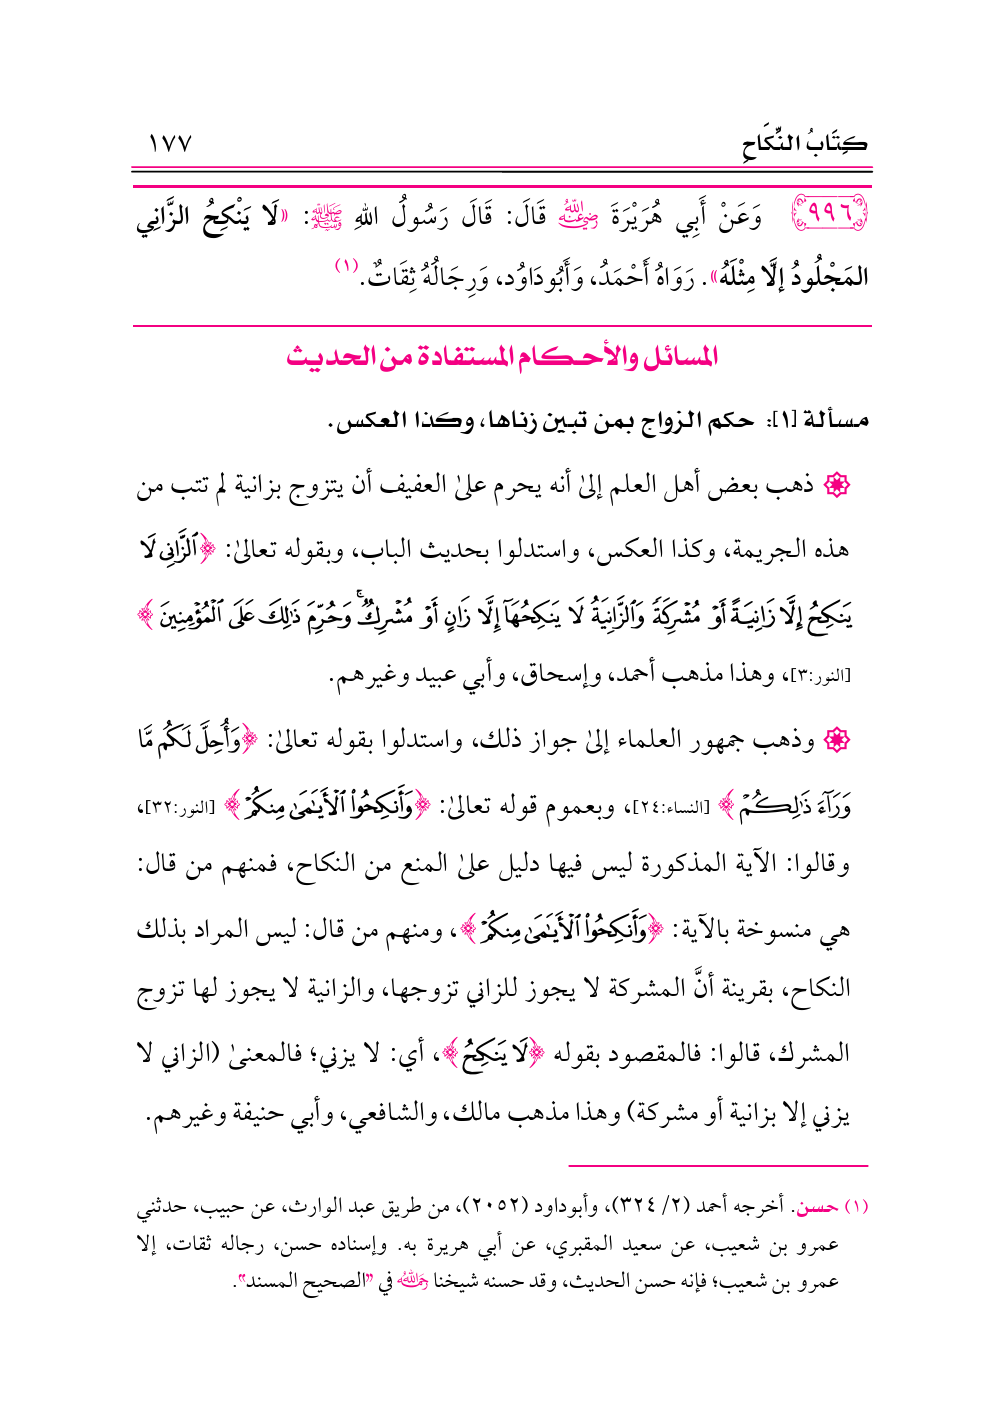 كِتَابُ النِّكَاحِ ١٧٧
٩٩٦ وَعَنْ أَبِي هُرَيْرَةَ رضي الله عنه قَالَ: قَالَ رَسُولُ اللهِ ﷺ: «لَا يَنْكِحُ الزَّانِي
المَجْلُودُ إلَّا مِثْلَهُ». رَوَاهُ أَحْمَدُ، وَأَبُودَاوُد، وَرِجَالُهُ ثِقَاتٌ. (١)
المسائل والأحكام المستفادة من الحديث
مسألة [١]: حكم الزواج بمن تبين زناها، وكذا العكس.
ذهب بعض أهل العلم إلىٰ أنه يحرم علىٰ العفيف أن يتزوج بزانية لم تتب من
هذه الجريمة، وكذا العكس، واستدلوا بحديث الباب، وبقوله تعالىٰ: ﴿ٱلزَّانِى لَا
يَنكِحُ إِلَّا زَانِيَةً أَوْ مُشْرِكَةً وَٱلزَّانِيَةُ لَا يَنكِحُهَآ إِلَّا زَانٍ أَوْ مُشْرِكٌ ۚ وَحُرِّمَ ذَٰلِكَ عَلَى ٱلْمُؤْمِنِينَ﴾
[النور:٣]، وهذا مذهب أحمد، وإسحاق، وأبي عبيد وغيرهم.
وذهب جمهور العلماء إلىٰ جواز ذلك، واستدلوا بقوله تعالىٰ: ﴿وَأُحِلَّ لَكُم مَّا
وَرَآءَ ذَٰلِكُمْ﴾ [النساء:٢٤]، وبعموم قوله تعالىٰ: ﴿وَأَنكِحُوا۟ ٱلْأَيَٰمَىٰ مِنكُمْ﴾ [النور:٣٢]،
وقالوا: الآية المذكورة ليس فيها دليل علىٰ المنع من النكاح، فمنهم من قال:
هي منسوخة بالآية: ﴿وَأَنكِحُوا۟ ٱلْأَيَٰمَىٰ مِنكُمْ﴾، ومنهم من قال: ليس المراد بذلك
النكاح، بقرينة أنَّ المشركة لا يجوز للزاني تزوجها، والزانية لا يجوز لها تزوج
المشرك، قالوا: فالمقصود بقوله ﴿لَا يَنكِحُ﴾، أي: لا يزني؛ فالمعنىٰ (الزاني لا
يزني إلا بزانية أو مشركة) وهذا مذهب مالك، والشافعي، وأبي حنيفة وغيرهم.
(١) حسن. أخرجه أحمد (٢/ ٣٢٤)، وأبوداود (٢٠٥٢)، من طريق عبد الوارث، عن حبيب، حدثني
عمرو بن شعيب، عن سعيد المقبري، عن أبي هريرة به. وإسناده حسن، رجاله ثقات، إلا
عمرو بن شعيب؛ فإنه حسن الحديث، وقد حسنه شيخنا رحمه الله في "الصحيح المسند".